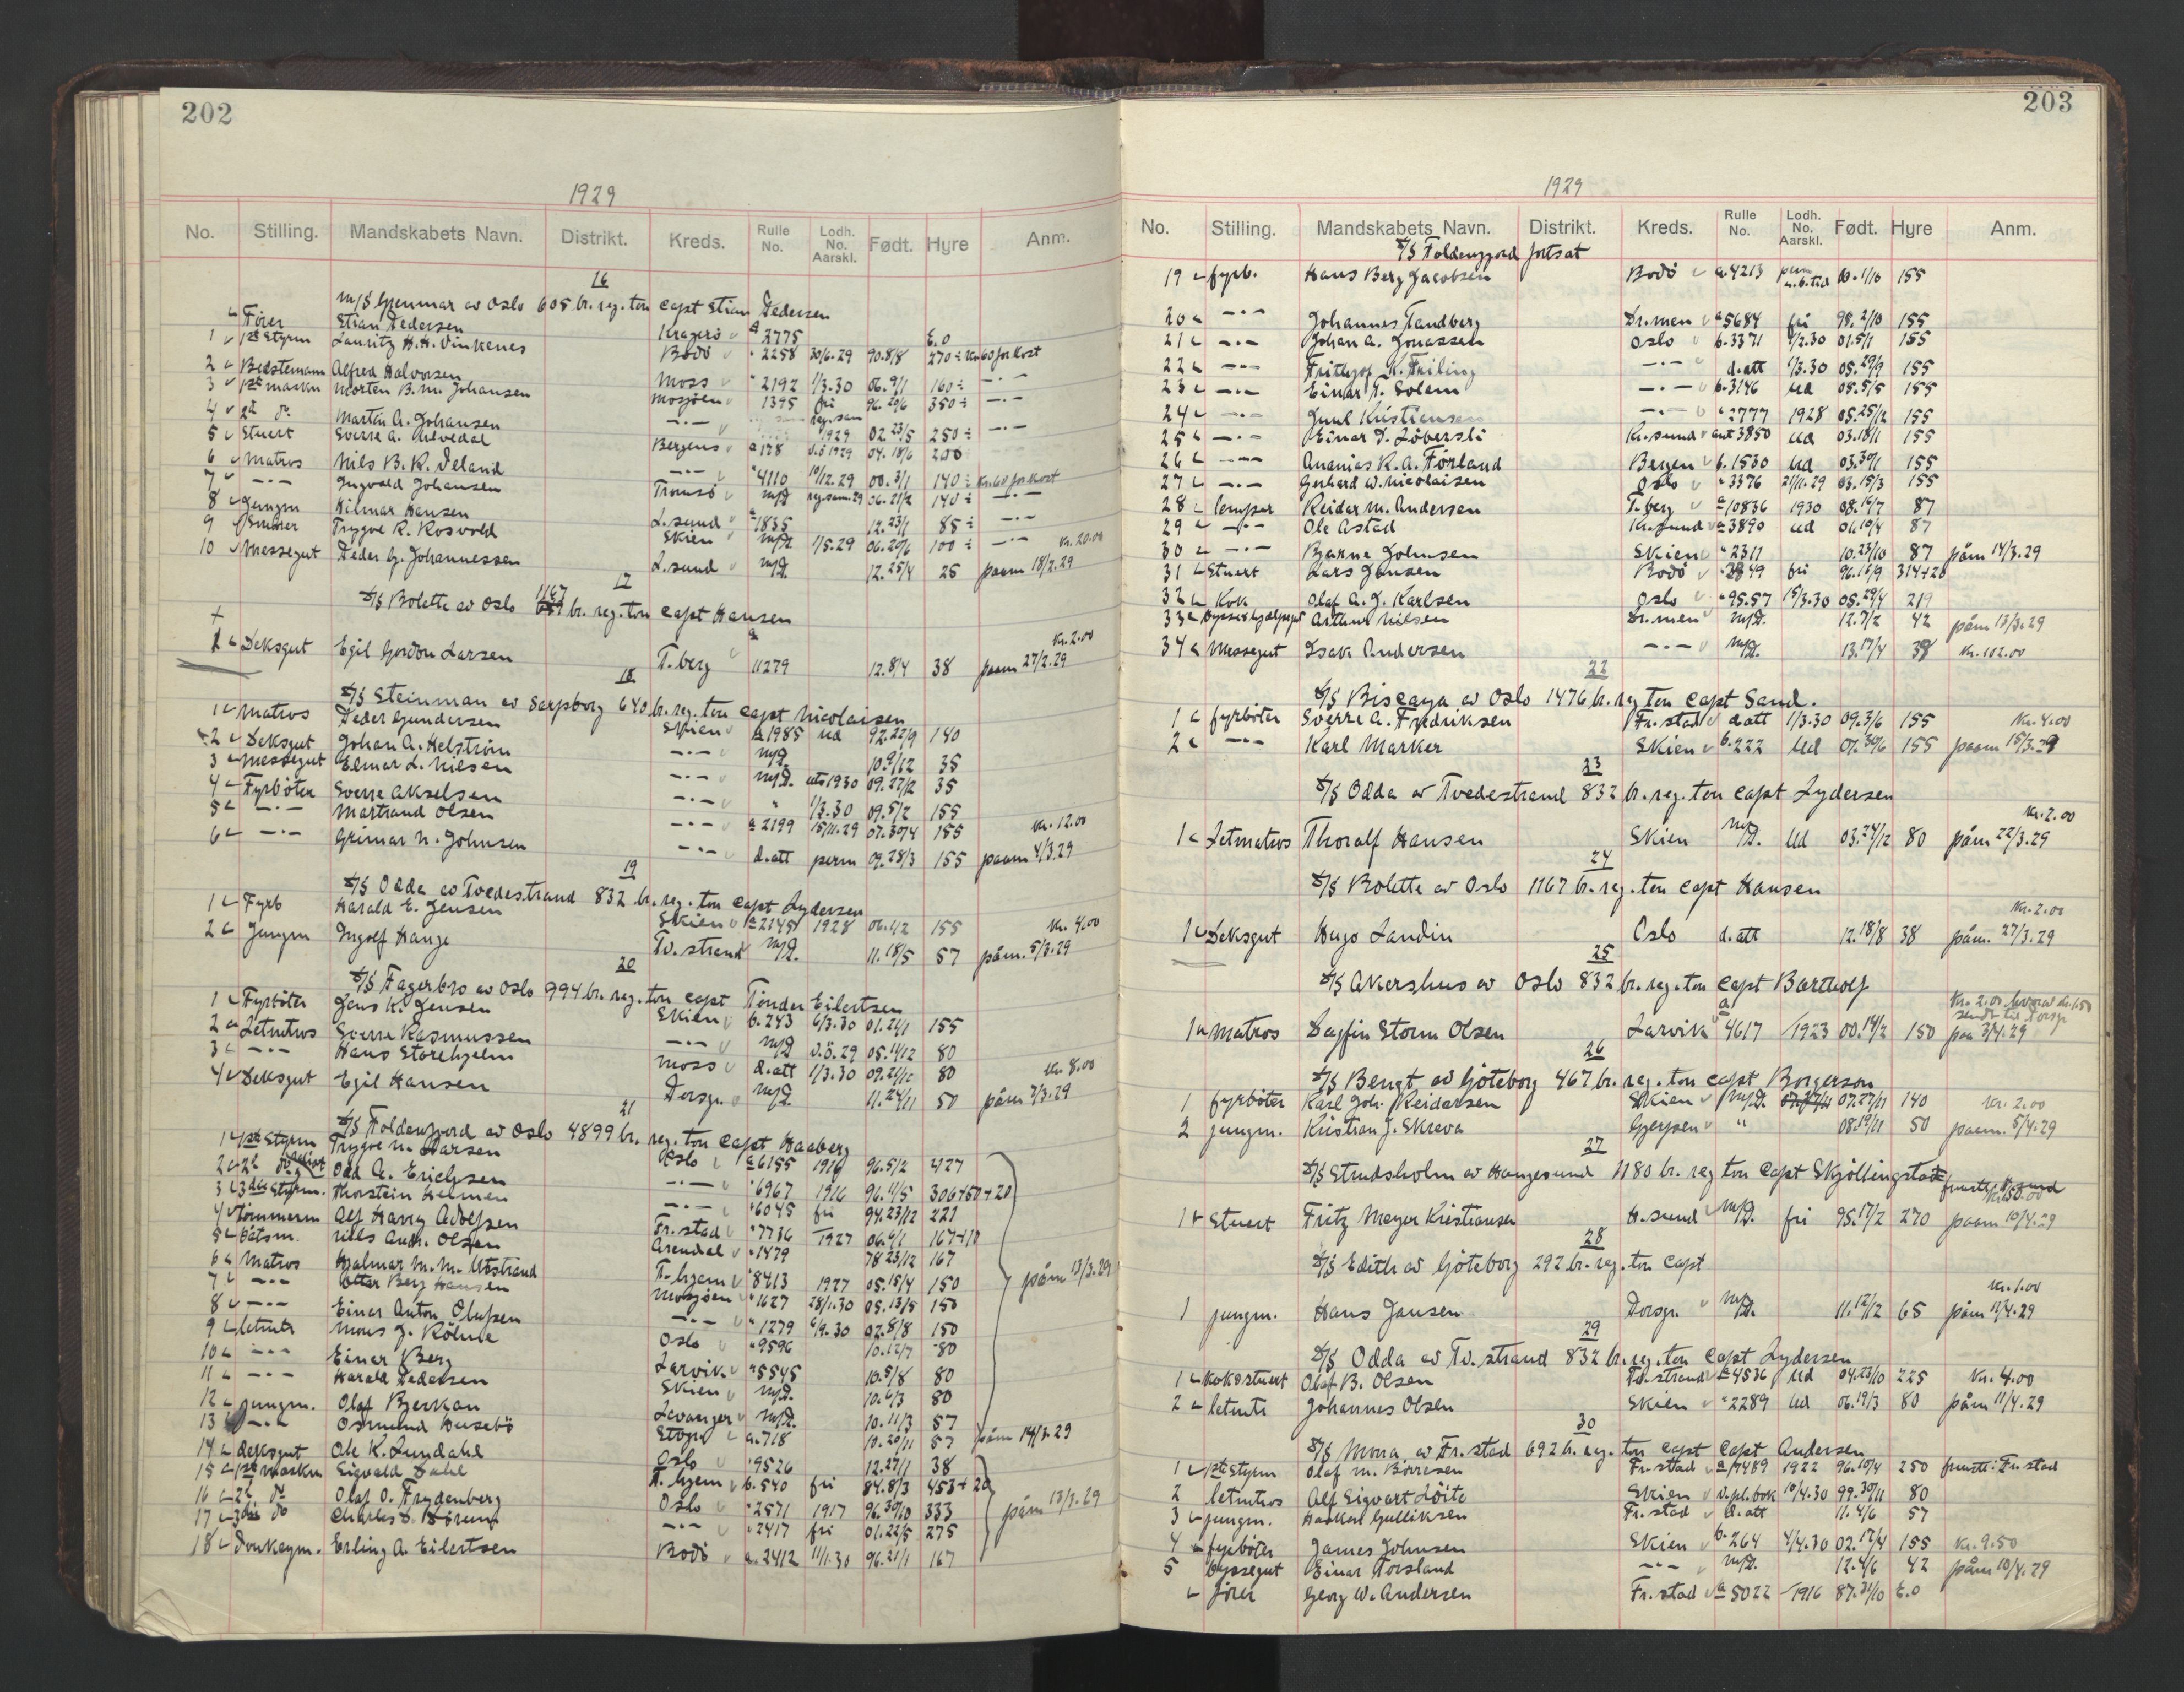 202
1929
No. Stilling. Mandskabets Navn. Distrikt. Kreds. Rulle No. Lodh. No. Aarskl. Født. Hyre Anm.
16
m/s Grenmar av Oslo 605 br. reg. ton capt Stian Pedersen
Fører Stian Pedersen Kragerø a 2775 E.O
1 1ste Styrm Lauritz H.H. Vinkenes Bodö " 2258 30/6.29 90.8/8 270 ÷ Kr 60 for Kost
2 Bedstemann Alfred Halvorsen Moss " 2192 1/3.30 06.9/1 160 ÷ —·—
3 1ste maskn Morten B.M. Johansen Mosjöen 1395 fri 96.20/6 350 ÷ —·—
4 2d do Martin A. Johansen —·— 1929 02.23/5 250 ÷ —·—
5 Stuert Sverre A. Bergens a 178 1929 04.18/6 200
6 Matros Nils B.K. Ileland —·— " 4110 10/12.29 00.3/1 140 ÷ Kr. 60 for Kost
7 —·— Ingvald Johansen Tromsö m/P. reg.sam.29 06.21/2 140 ÷ —·—
8 Jungm Hilmar Hansen L.sund a 1835 12.23/1 85 ÷ —·—
9 Smører Trygve R. Rosvold Skien m/P. 1/5.29 06.20/6 100 ÷ —·— Kr. 20.00
10 Messegut Peder G. Johannessen L.sund m/P. 12.25/4 25 paam 18/2.29
17
S/S Bolette av Oslo 1167 br. reg. ton capt Hansen
1 Deksgut Egil Gordon Larsen T.berg a 11279 12.8/4 38 paam 27/2.29 Kr. 2.00
18
S/S Steinman av Sarpsborg 640 br. reg. ton capt Nicolaisen
1 Matros Peder Gundersen Skien a 1985 Ud 92.22/9 140
2 Deksgut Johan A. Helström —·— m/P. 10.9/12 35
3 Messegut Elmar L. Nilsen —·— m/P. uts1930 09.22/2 35
4 Fyrböter Sverre Akselsen —·— " 1/3.30 09.5/2 155
5 —·— Martrand Olsen —·— a 2199 15/11.29 07.30/4 155 Kr. 12.00
6 —·— Grimar N. Johnsen —·— d.att perm 09.28/3 155 paam 4/3.29
19
S/S Odda av Tvedestrand 832 br. reg. ton capt Lydersen
1 Fyrb Harald E. Jensen Skien a 2145 1928 06.1/2 155 Kr. 4.00
2 Jungm Ingolf Hauge Tv.strand m/P. 11.18/5 57 påm. 5/3.29
20
S/S Fagerbro av Oslo 994 br. reg. ton capt Tönder Eilertsen
1 Fyrböter Jens K. Jensen Skien b. 243 6/3.30 01.21/1 155
2 Letmtros Sverre Rasmussen —·— m/P. 1.ö.29 05.14/12 80
3 —·— Hans Storehjelm Moss d.att 1/3.30 09.21/12 80 Kr. 8.00
4 Deksgut Egil Hansen Porsgr. m/P. 11.24/11 50 påm 7/3.29
21
S/S Foldenfjord av Oslo 4899 br. reg. ton capt Haaberg
1 1ste Styrm Trygve M. Larsen Oslo a 6155 1916 96.5/2 427
2 2d do Odd A. Erichsen —·— " 6967 1916 96.11/5 306+50+20
3 3die Styrm. Thorstein Helmen —·— " 6045 fri 94.23/12 221
4 Tömmerm Alf Harry Adolfsen Fr.stad " 7736 1927 06.4/1 167+10
5 Båtsm. Nils Andr. Olsen Arendal " 1479 78.23/12 167
6 Matros Hjalmar M.M. Utstrand T.hjem " 8413 1927 05.15/4 150 påm 13/3.29
7 —·— Ottar Berg Hansen Mosjöen " 1627 28/1.30 05.13/5 150
8 —·— Einar Anton Olufsen —·— " 1279 6/9.30 02.8/8 150
9 letmtr Mons J. Röhne Oslo " 9596 10.12/7 80
10 —·— Einar Berg Larvik " 5545 10.5/8 80
11 —·— Harald Pedersen Skien m/P. 10.6/3 80
12 Jungm. Olaf Bjerkan Levanger m/P. 10.11/3 57
13 —·— Osmund Husebö a. 718 10.20/11 57 påm 14/3.29
14 deksgut Ole K. Lundahl Oslo " 9526 12.27/1 38
15 1ste Maskn Sigvald Dahl T.hjem b. 540 fri 84.8/3 453+20
16 2d do Olaf O. Frydenberg Oslo " 2571 1917 96.30/10 333 påm 13/3.29
17 3die do Charles —·— " 2417 fri 01.22/5 275
18 Donkeym. Erling A. Eilertsen Bodö a. 2412 11/1.30 96.21/1 167
203
1929
No. Stilling. Mandskabets Navn. Distrikt. Kreds. Rulle No. Lodh. No. Aarskl. Født. Hyre Anm.
S/S Foldenfjord fortsat
19 fyrb. Hans Berg Jacobsen Bodö a. 4213 perm u.b.tid 00.1/10 155
20 —·— Johannes Tandberg Dr.men a 5684 fri 98.2/10 155
21 —·— Johan A. Jonassen Oslo b. 3371 1/2.30 01.5/1 155
22 —·— Frithjof K. Friling —·— d.att 1/3.30 05.29/9 155
23 —·— Einar T. Solem —·— b. 3146 Ud 05.5/5 155
24 —·— Juul Kristiansen —·— " 2777 1928 05.25/12 155
25 —·— Einar D. Löbersli Kr.sund ant 3850 Ud 03.18/1 155
26 —·— Ananias R.A. Förland Bergen b. 1530 Ud 03.30/1 155
27 —·— Gerhard W. Nicolaisen Oslo " 3376 21/11.29 03.15/3 155
28 lemper Reidar M. Andersen T.berg a 10836 1930 08.16/7 87
29 —·— Ole Astad Kr.sund a 3890 Ud 01.10/4 87
30 —·— Bjarne Johnsen Skien " 2311 10.23/10 87 påm 14/3.29
31 Stuert Lars Jensen Bodö " 2849 fri 96.16/9 314+20
32 Kok Olaf A.J. Karlsen Oslo " 95.57 15/3.30 05.29/4 219
33 Byssehjælpegut Arthur Nilsen Dr.men m/P. 12.7/2 42 påm 13/3.29
34 Messegut Isak Andersen —·— m/P. 13.17/4 38 Kr. 102.00
22
S/S Biscaya av Oslo 1476 br. reg ton capt Sand.
1 fyrböter Sverre A. Fredriksen Fr.stad d.att 1/3.30 09.3/6 155 Kr. 4.00
2 —·— Karl Marker Skien b. 222 Ud 07.30/6 155 paam 15/3.29
23
S/S Odda av Tvedestrand 832 br. reg. ton capt Lydersen
Kr. 2.00
1 Letmatros Thoralf Hansen Skien m/P. Ud 03.24/12 80 påm 22/3.29
24
S/S Bolette av Oslo 1167 br. reg. ton capt Hansen
Kr. 2.00
1 Deksgut Hugo Landin Oslo d.att 12.18/8 38 påm. 27/3.29
25
S/S Akershus av Oslo 832 br. reg. ton capt Bartholf
Kr. 2.00 hvorav kr. 1.50 sendt til Porsgr
1 Matros Dagfin Storm Olsen Larvik a 4617 1923 00.14/2 150 paa 3/4.29
26
S/S Bengt av Göteborg 467 br. reg. ton capt Borgerson
1 fyrböter Karl Joh. Reidarsen Skien m/P. 07.27/11 140 Kr. 2.00
2 jungm. Kristian J. Skreva Gjerpen " 08.19/11 50 paam. 5/4.29
27
S/S Strudsholm av Haugesund 1180 br. reg ton capt Skjöllingstad
1 Stuert Fritz Meyer Kristiansen H.sund m/P. fri 95.17/2 270 paam 10/4.29
28
S/S Edith av Göteborg 292 br. reg. ton capt
Kr. 1.00
1 jungm. Hans Jansen Porsgr. m/P. 11.12/12 65 påm 11/4.29
29
S/S Odda av Tv.strand 832 br. reg. ton capt Lydersen
1 Kokostuert Olaf B. Olsen Tv.strand a 4536 Ud 04.23/10 225 Kr. 4.00
2 letmtr Johannes Olsen Skien " 2289 Ud 06.19/3 80 påm 11/4.29
30
S/S Mona av Fr.stad 692 br. reg. ton capt capt Andersen
1 1ste Styrm Olaf M. Börresen Fr.stad a 7489 1922 96.10/4 250 frustt: Fr.stad
2 letmtros Alf Sigvart Löite Skien s.pl.bok 10/4.30 99.30/11 80
3 jungm. Haakon Gulliksen Fr.stad d.att 11.4/6 57
4 fyrböter James Johnsen Skien b. 264 4/4.30 02.17/4 155 Kr. 9.50
5 Byssegut Einar Torsland —·— m/P. 12.4/6 42 påm 10/4.29
fører Georg W. Andersen Fr.stad a 5022 1916 87.31/10 E.O